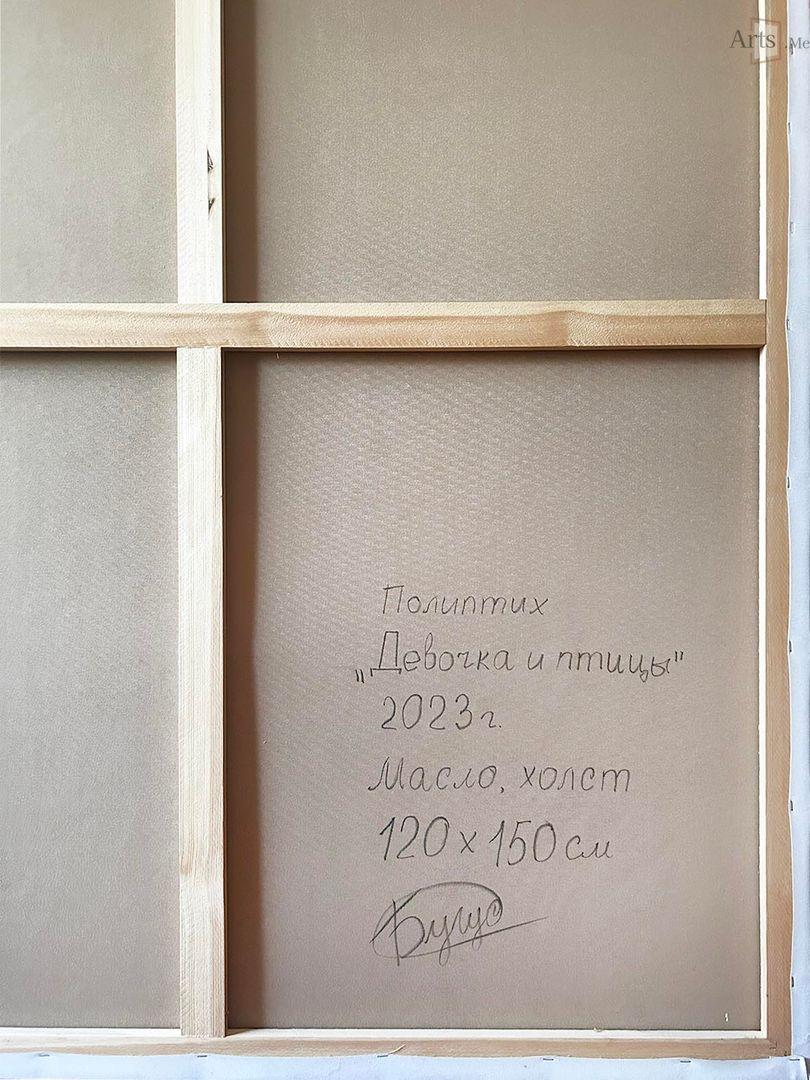 Arts.Me
Полиптих
„Девочка и птицы"
2023 г.
Масло, холст
120 х 150 см
Бугус